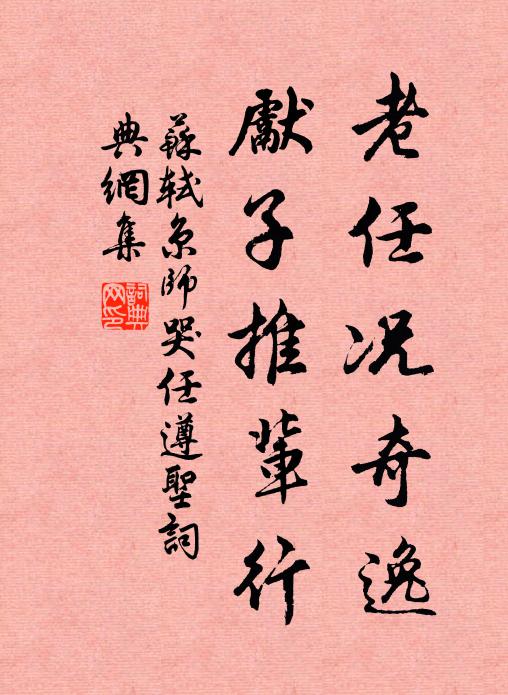 老任况奇逸
獻子推輩行
蘇軾京師哭任遵聖詞
典網集
詞典網印